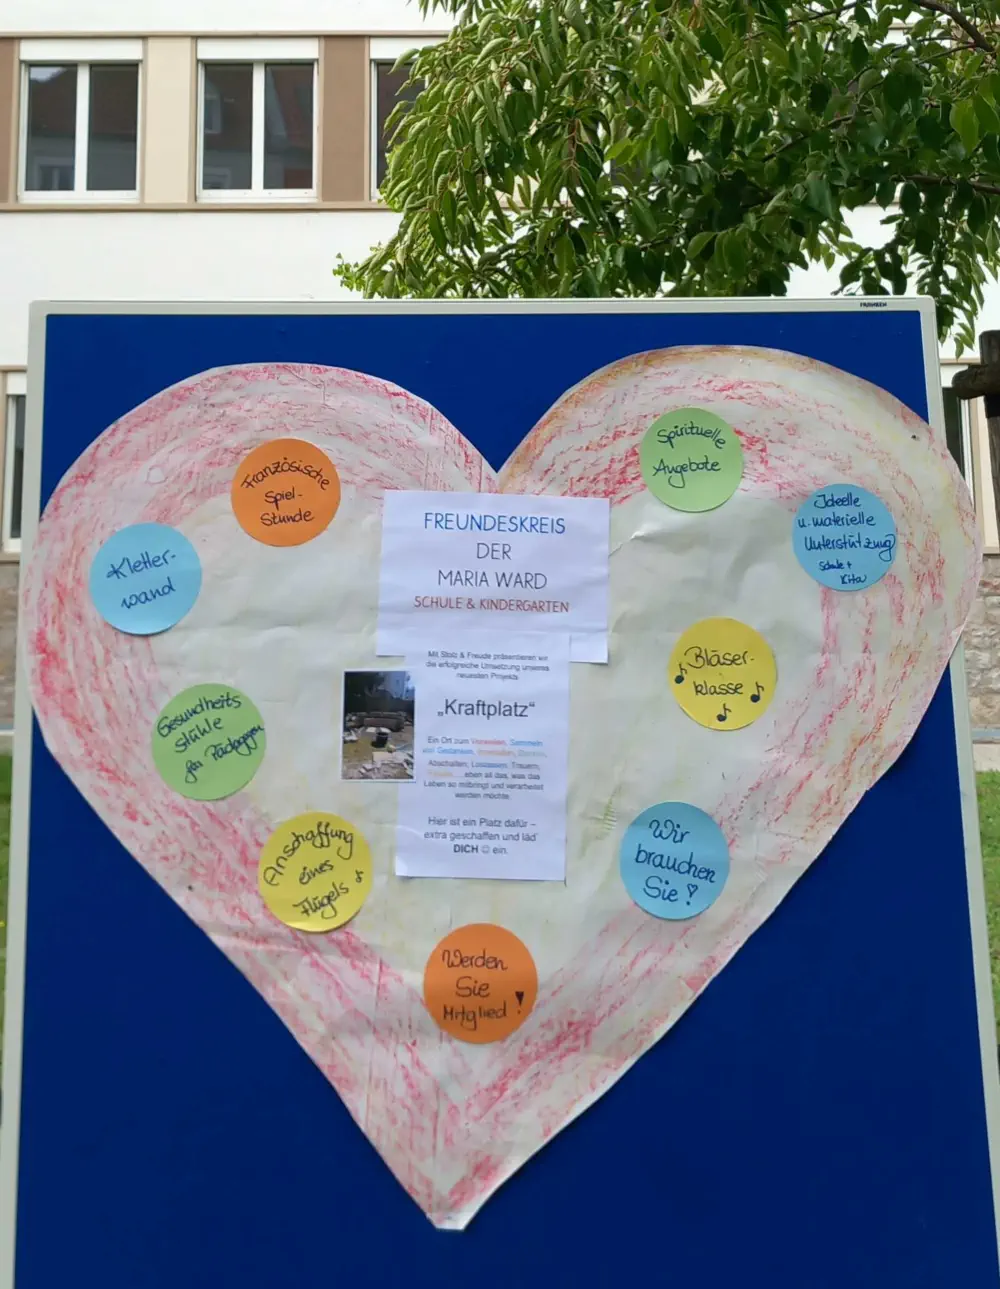 FRANKEN
Französische
Spiel-
Stunde
Kletter-
wand
Gesundheits
stühle
für Pädagogen
Anschaffung
eines
Flügels
FREUNDESKREIS
DER
MARIA WARD
SCHULE & KINDERGARTEN
Mit Stolz & Freude präsentieren wir
die erfolgreiche Umsetzung unseres
neuesten Projekts
„Kraftplatz“
Ein Ort zum Verweilen, Sammeln
von Gedanken, Innehalten,
Abschalten, Loslassen, Trauern,
eben all das, was das
Leben so mitbringt und verarbeitet
werden möchte.
Hier ist ein Platz dafür –
extra geschaffen und läd`
DICH ☺ ein.
Spirituelle
Angebote
Ideelle
u. materielle
Unterstützung
Schule +
Kita
Bläser-
klasse
Wir
brauchen
Sie!
Werden
Sie
Mitglied!